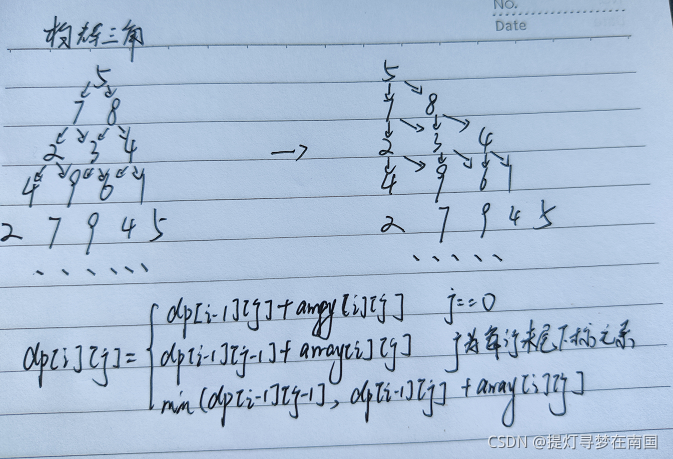 No.
Date
构在三角
5
5
7 8
7 8
2 3 4
2 3 4
4 9 6 1
4 9 6 1
2 7 9 4 5
2 7 9 4 5
......
......
dp[i-1][j]+array[i][j] j==0
dp[i][j]= dp[i-1][j-1]+array[i][j] j为每行末尾下标元素
min(dp[i-1][j-1], dp[i-1][j] + array[i][j]
CSDN @提灯寻梦在南国